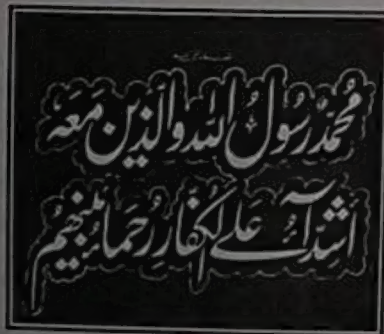 مُحَمَّدٌ رَسُولُ اللهِ وَالَّذِينَ مَعَهٗ
اَشِدَّآءُ عَلَى الْكُفَّارِ رُحَمَآءُ بَيْنَهُمْ